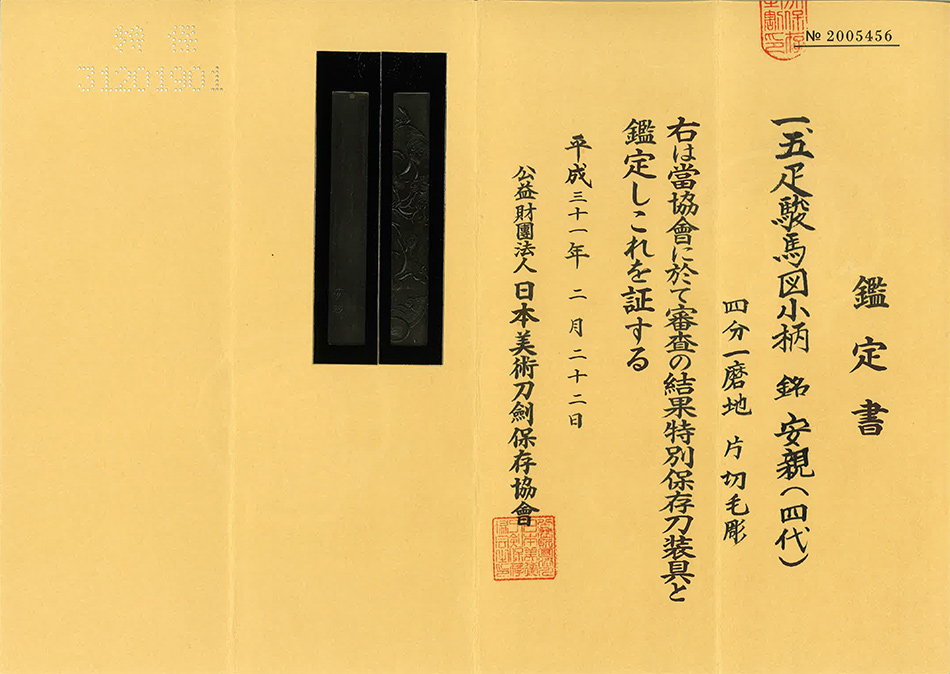 № 2005456
鑑定書
一、五疋駿馬図小柄 銘 安親(四代)
四分一磨地 片切毛彫
右は當協會に於て審査の結果特別保存刀装具と
鑑定しこれを証する
平成三十一年 二月二十二日
公益財團法人 日本美術刀劍保存協會
31201901